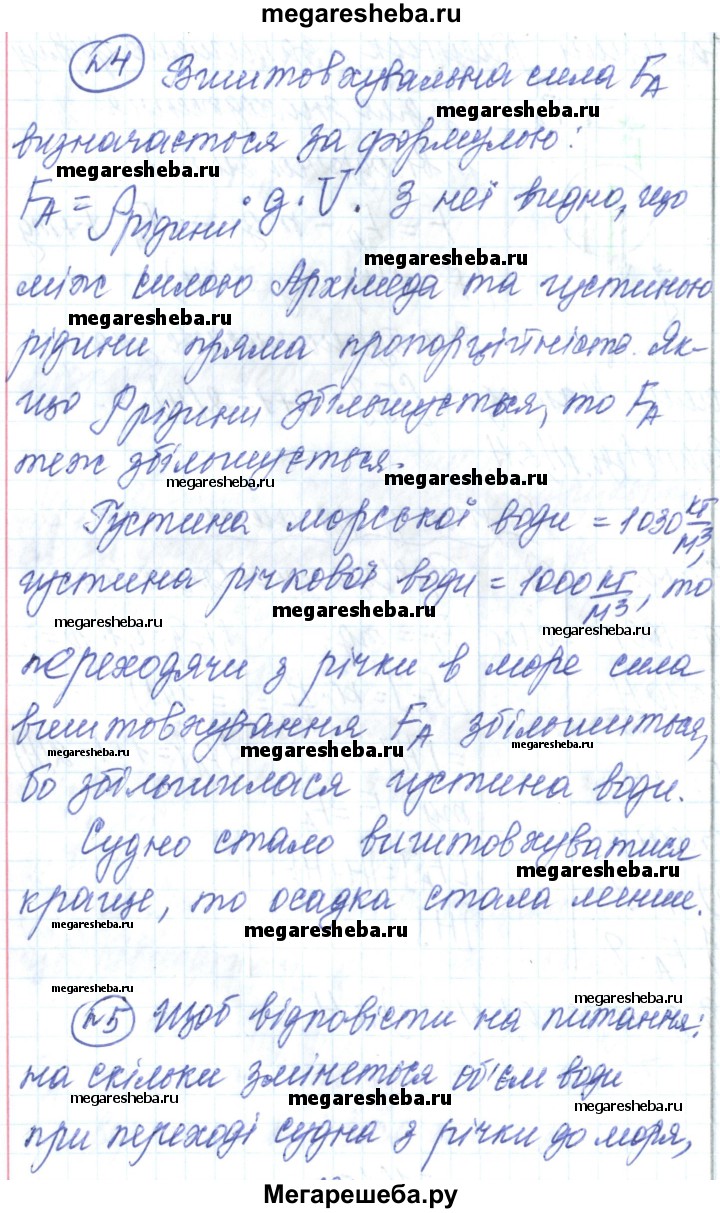 megaresheba.ru
№4 Виштовхувальна сила F_A
megaresheba.ru
визначається за формулою:
megaresheba.ru
F_A = ρрідини · g · V. З неї видно, що
megaresheba.ru
між силою Архімеда та густиною
megaresheba.ru
рідини пряма пропорційність. Як-
що ρрідини збільшується, то F_A
теж збільшується.
megaresheba.ru megaresheba.ru
Густина морської води = 1030 кг/м³,
густина річкової води = 1000 кг/м³, то
megaresheba.ru megaresheba.ru megaresheba.ru
переходячи з річки в море сила
виштовхування F_A збільшиться,
megaresheba.ru megaresheba.ru megaresheba.ru
бо збільшилася густина води.
Судно стало виштовхуватися
megaresheba.ru
краще, то осадка стала менше.
megaresheba.ru megaresheba.ru
megaresheba.ru megaresheba.ru
№5 Щоб відповісти на питання:
на скільки змінеться об'єм води
megaresheba.ru megaresheba.ru megaresheba.ru
при переході судна з річки до моря,
Мегарешеба.ру